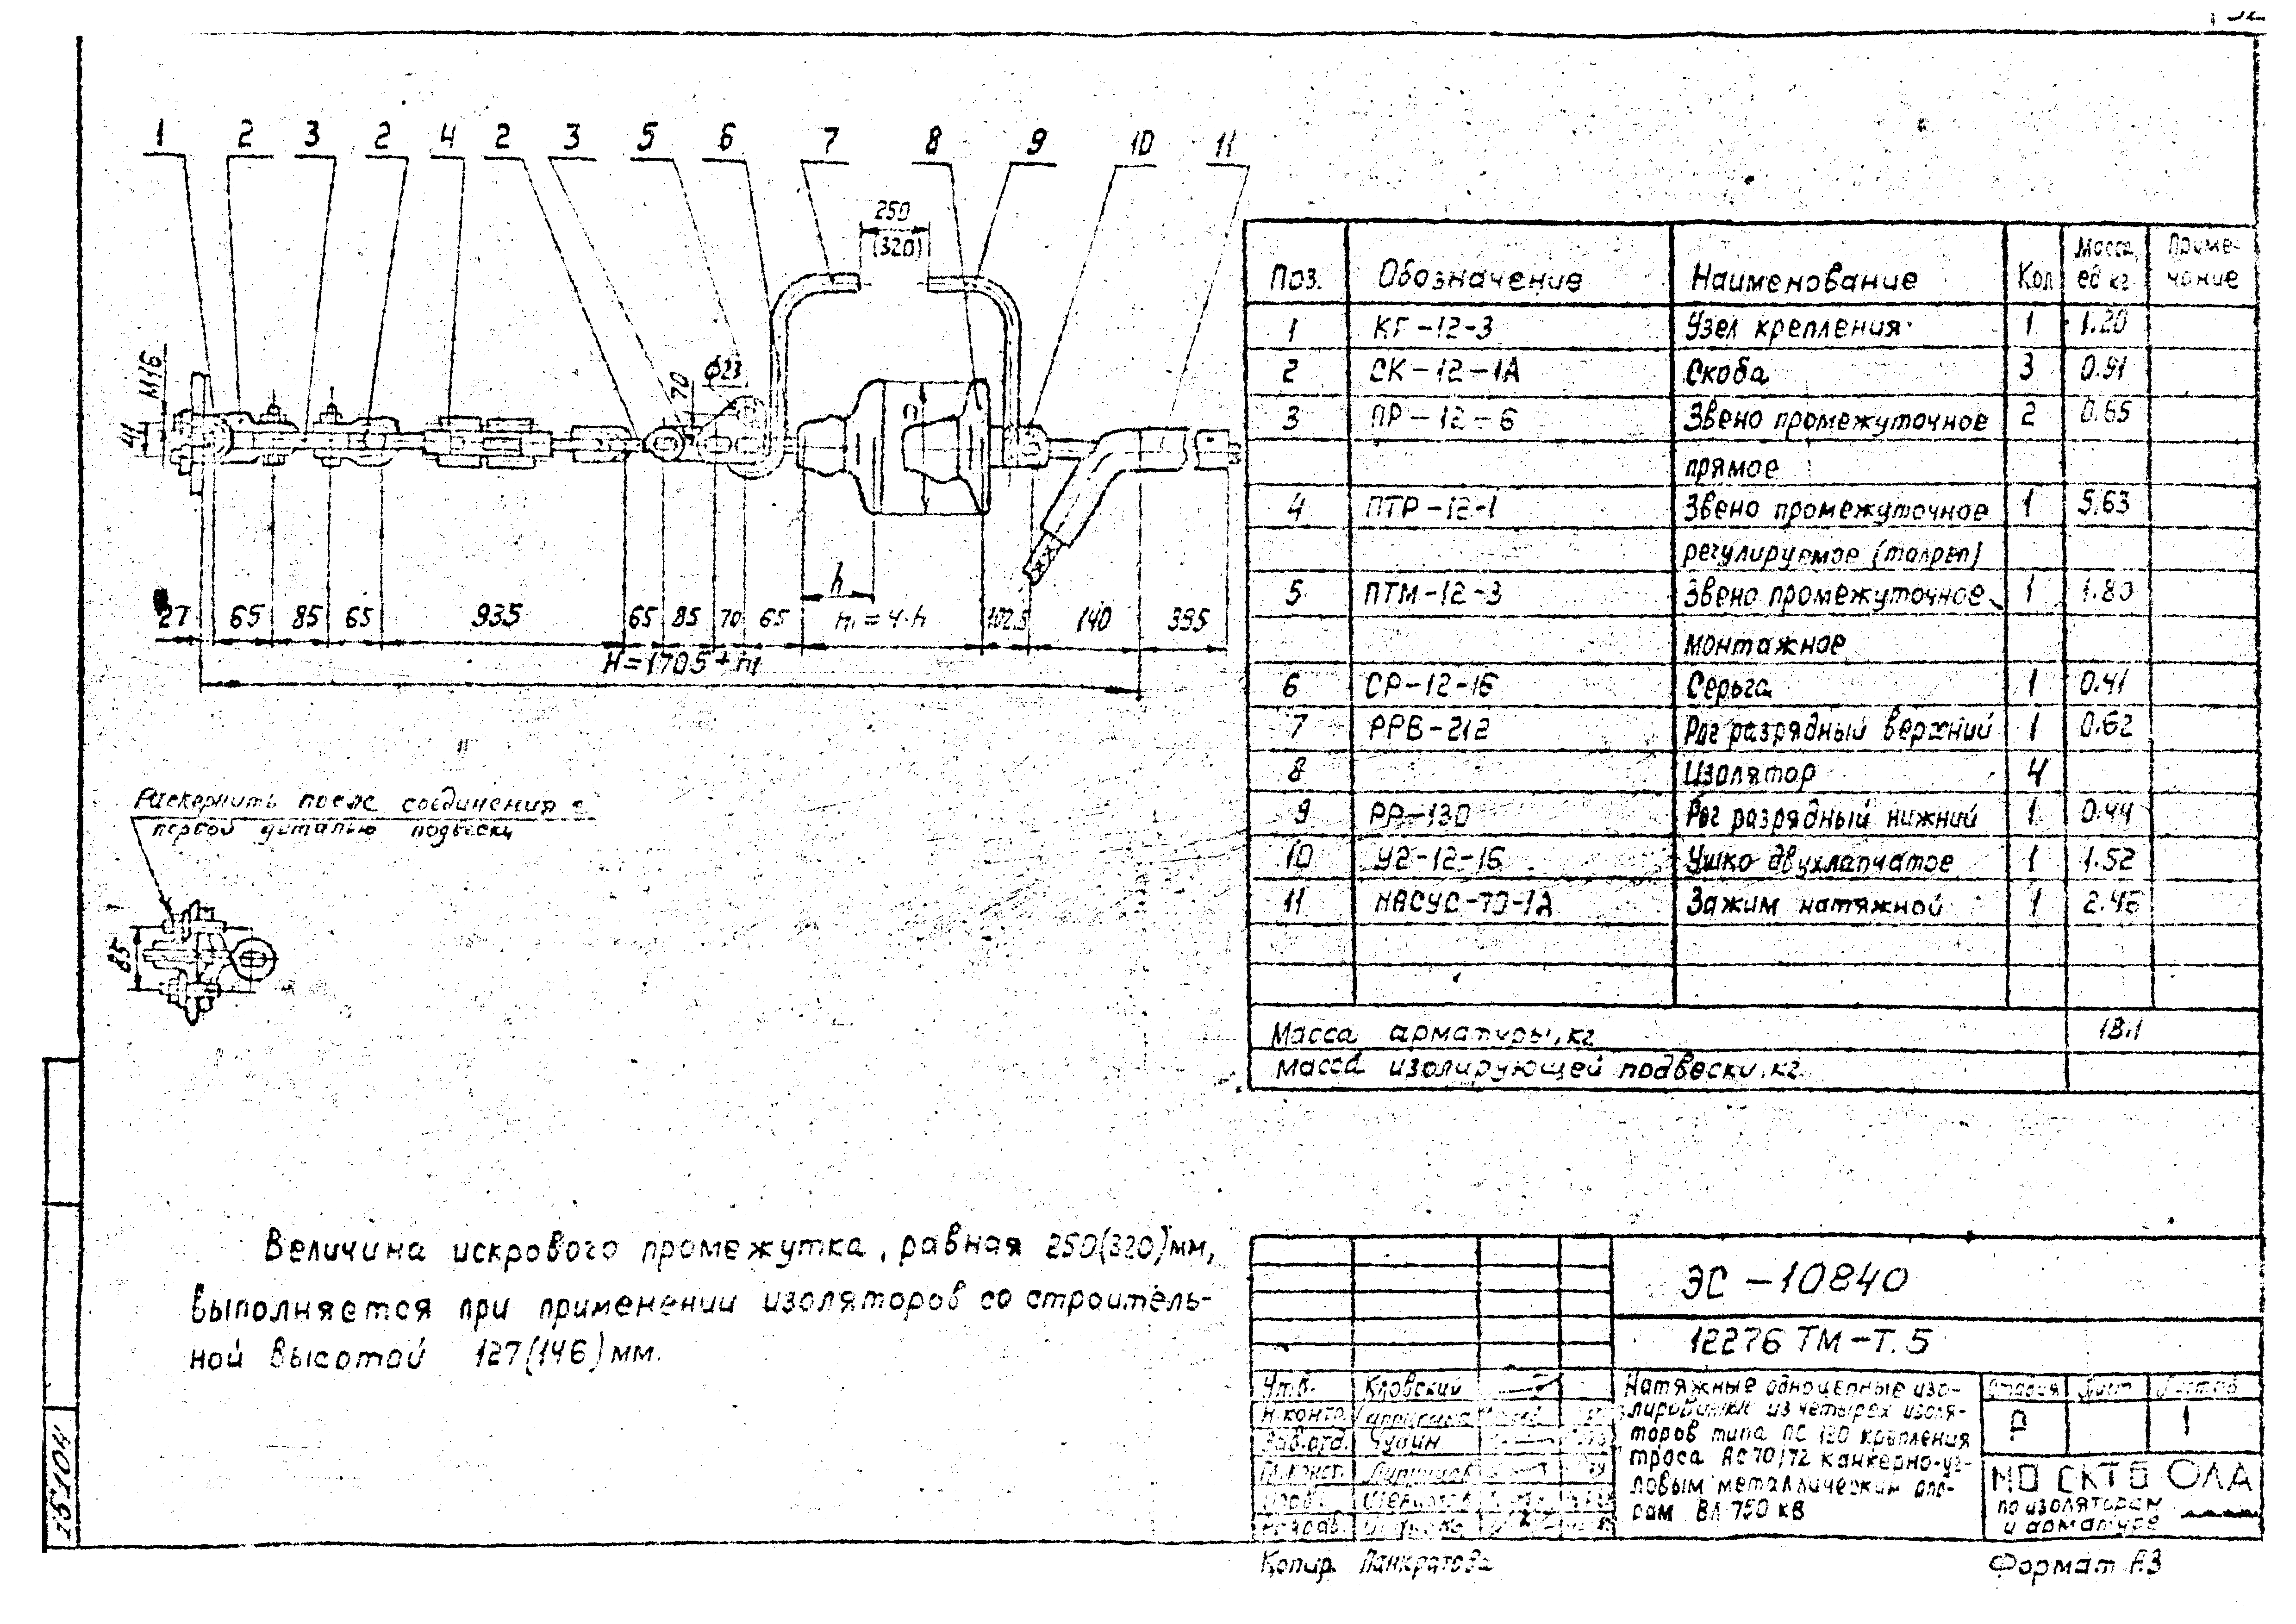 1 2 3 2 4 2 3 5 6 7 8 9 10 11
250
(320)
М16
41
70
ф23
D
h
27 65 85 65 935 65 85 70 65 h₁=4·h 102.5 140 395
H=1705+h₁
Раскернить после соединения с
первой деталью подвески
85
Поз. Обозначение Наименование Кол Масса, ед кг Приме-чание
1 КГ-12-3 Узел крепления 1 1.20
2 СК-12-1А Скоба 3 0.91
3 ПР-12-6 Звено промежуточное 2 0.65
прямое
4 ПТР-12-1 Звено промежуточное 1 5.63
регулируемое (талреп)
5 ПТМ-12-3 Звено промежуточное 1 1.80
монтажное
6 СР-12-16 Серьга 1 0.41
7 РРВ-212 Рог разрядный верхний 1 0.62
8 Изолятор 4
9 РР-130 Рог разрядный нижний 1 0.44
10 У2-12-16 Ушко двухлапчатое 1 1.52
11 НАСУС-70-1А Зажим натяжной 1 2.46
Масса арматуры, кг 18.1
Масса изолирующей подвески, кг
Величина искрового промежутка, равная 250(320)мм,
выполняется при применении изоляторов со строитель-
ной высотой 127(146)мм.
ЭС-10840
12276 ТМ-Т.5
Утв. Кловский
Н.контр.
Зав.отд. Чудин
Натяжные одноцепные изо-
лированные из четырех изоля-
торов типа ПС 120 крепления
троса АС70/72 к анкерно-уг-
ловым металлическим опо-
рам ВЛ 750 кВ
Стадия Лист Листов
Р 1
МО СКТБ ОЛА
по изоляторам
и арматуре
Копир. Панкратова
Формат А3